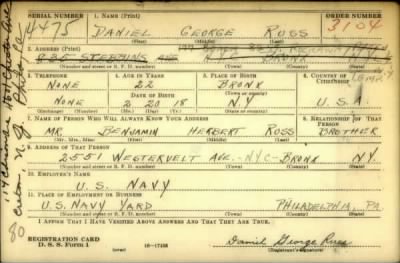 SERIAL NUMBER 1. NAME (Print) ORDER NUMBER
4475 DANIEL GEORGE RUSS 3104
(First) (Middle) (Last)
2. ADDRESS (Print)
STEBBINS AVE BRONX
(Number and street or R. F. D. number) (Town) (County) (State)
3. TELEPHONE 4. AGE IN YEARS 5. PLACE OF BIRTH 6. COUNTRY OF CITIZENSHIP
NONE 22 BRONX
DATE OF BIRTH (Town or county)
NONE 2 20 18 N.Y U.S.A.
(Exchange) (Number) (Mo.) (Day) (Yr.) (State or country)
7. NAME OF PERSON WHO WILL ALWAYS KNOW YOUR ADDRESS 8. RELATIONSHIP OF THAT PERSON
MR. BENJAMIN HERBERT ROSS BROTHER
(Mr., Mrs., Miss) (First) (Middle) (Last)
9. ADDRESS OF THAT PERSON
2551 WESTERVELT AVE.-NYC-BRONX N.Y.
(Number and street or R. F. D. number) (Town) (County) (State)
10. EMPLOYER'S NAME
U.S. NAVY
11. PLACE OF EMPLOYMENT OR BUSINESS
U.S. NAVY YARD PHILADELPHIA, PA
(Number and street or R. F. D. number) (Town) (County) (State)
I AFFIRM THAT I HAVE VERIFIED ABOVE ANSWERS AND THAT THEY ARE TRUE.
REGISTRATION CARD
D. S. S. FORM 1 (over) 16—17105 Daniel George Russ
(Registrant's signature)
80